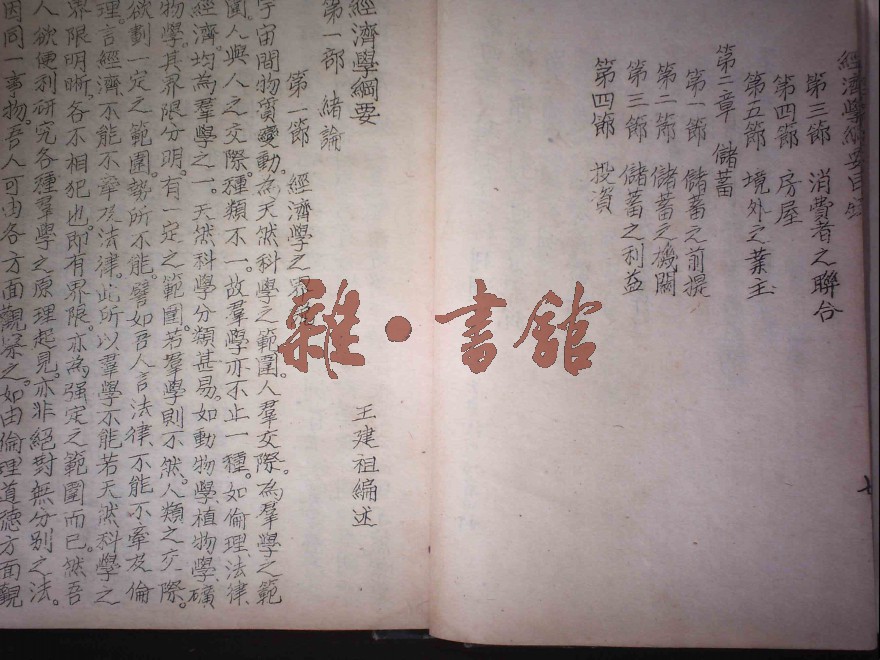 經濟學綱要目錄
第三節 消費者之聯合
第四節 房屋
第五節 境外之業主
第二章 儲蓄
第一節 儲蓄之前提
第二節 儲蓄之機關
第三節 儲蓄之利益
第四節 投資
七
經濟學綱要
第一部 緒論
王建祖編述
第一節 經濟學之界
宇宙間物質變動。為天然科學之範圍。人羣交際。為羣學之範
圍。人與人之交際。種類不一。故羣學亦不止一種。如倫理法律
經濟。均為羣學之一。天然科學分類甚易。如動物學植物學礦
物學。其界限分明。有一定之範圍。若羣學則不然。人類之交際。
欲劃一定之範圍。勢所不能。譬如吾人言法律。不能不牽及倫
理。言經濟。不能不牽及法律。此所以羣學不能若天然科學之
界限明晰。各不相犯也。即有界限。亦為強定之範圍而已。然吾
人欲便利研究各種羣學之原理起見。亦非絕對無分別之法。
因同一事物。吾人可由各方面觀察之。如由倫理道德方面觀
雜·書館